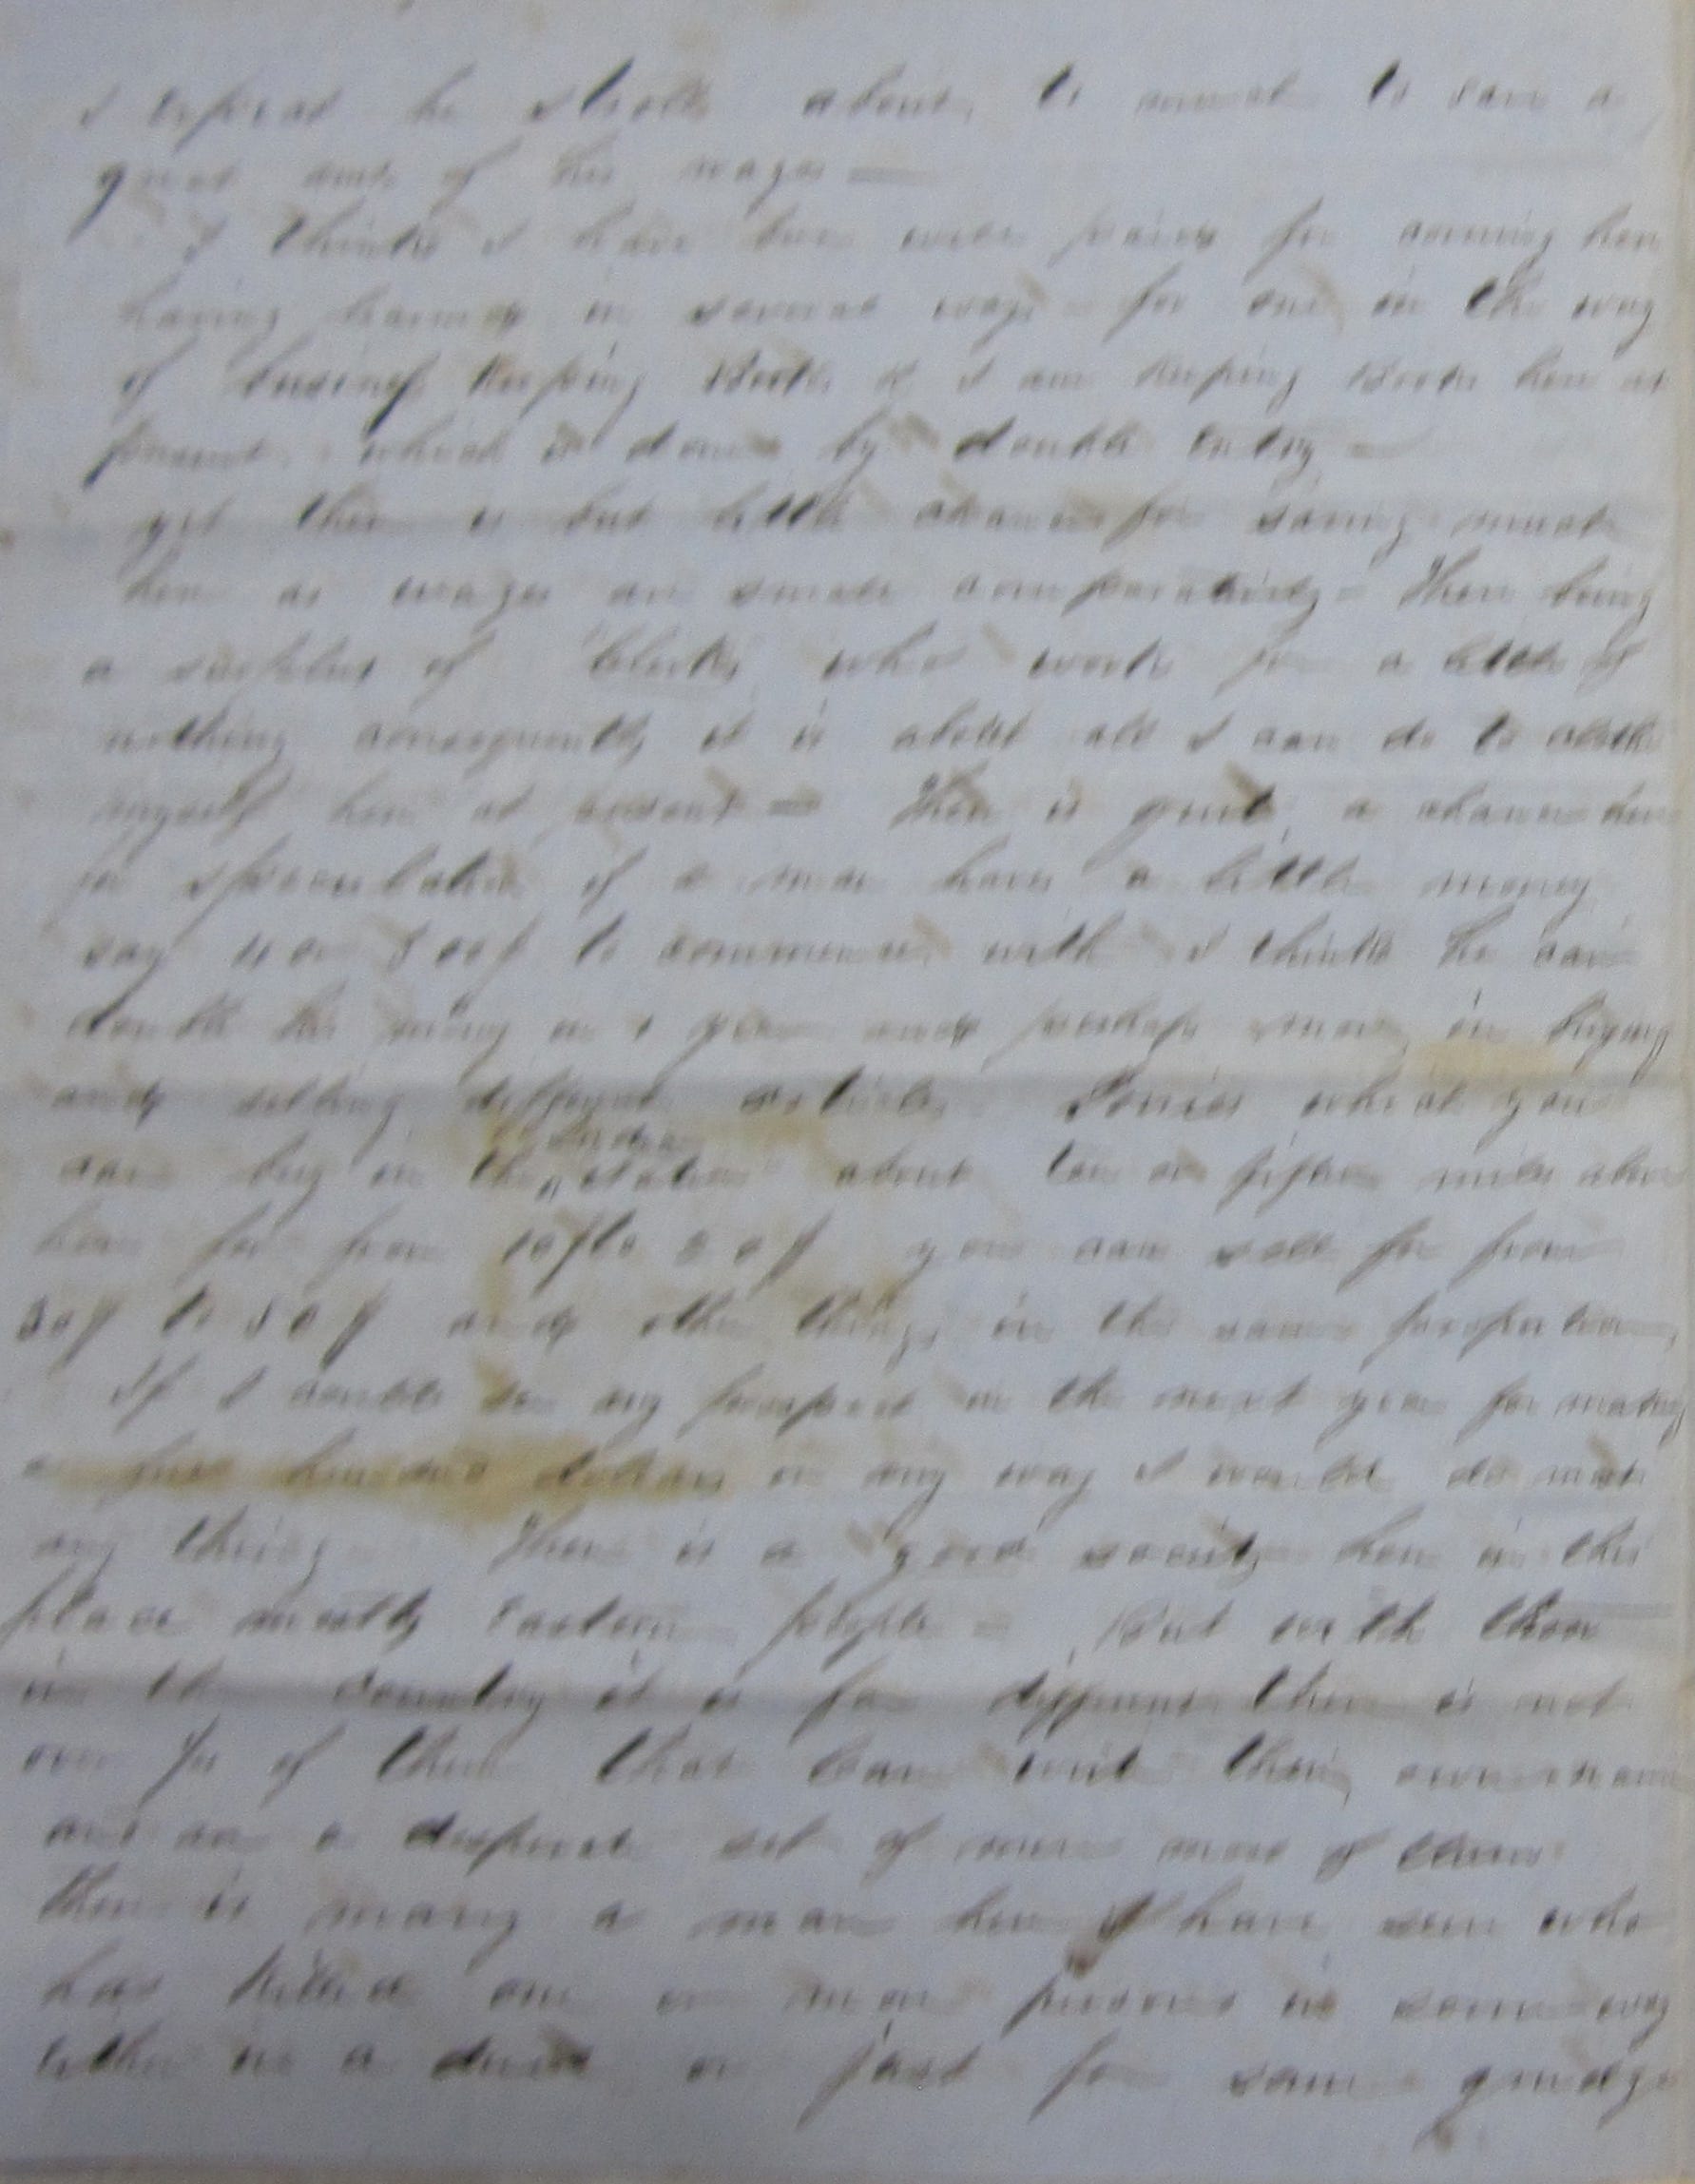 I expect he strolls about to much to save a
great deal of his wages —
I think I have been well paid for coming here
having learned in several ways — for one in the way
of business Keeping Books & I am keeping Books here at
present which is done by double entry —
yet there is but little chance for saving much
here as wages are small comparatively — There being
a surplus of "Clerks" who work for a little of
nothing consequently it is about all I can do to clothe
myself here at present — There is quite a chance here
for speculation if a man have a little money
say to commence with I think he can
double his money in 1 year and perhaps more in buying
and selling different articles Ponies which you
can buy in the Indian Nation about ten or fifteen miles above
here for from 10$ to 20$ you can sell for from
30$ to 50$ and other things in the same proportion
If I could see any prospect in the next year for making
a five hundred dollars in any way I would do most
any thing — There is a good society here in this
place mostly Eastern people — But with those
in the country it is far different there is not
over of them that can write their own name
and are a desperate set of men most of them
there is many a man here I have seen who
has killed one or more persons in some way
either in a duel or just for some grudge